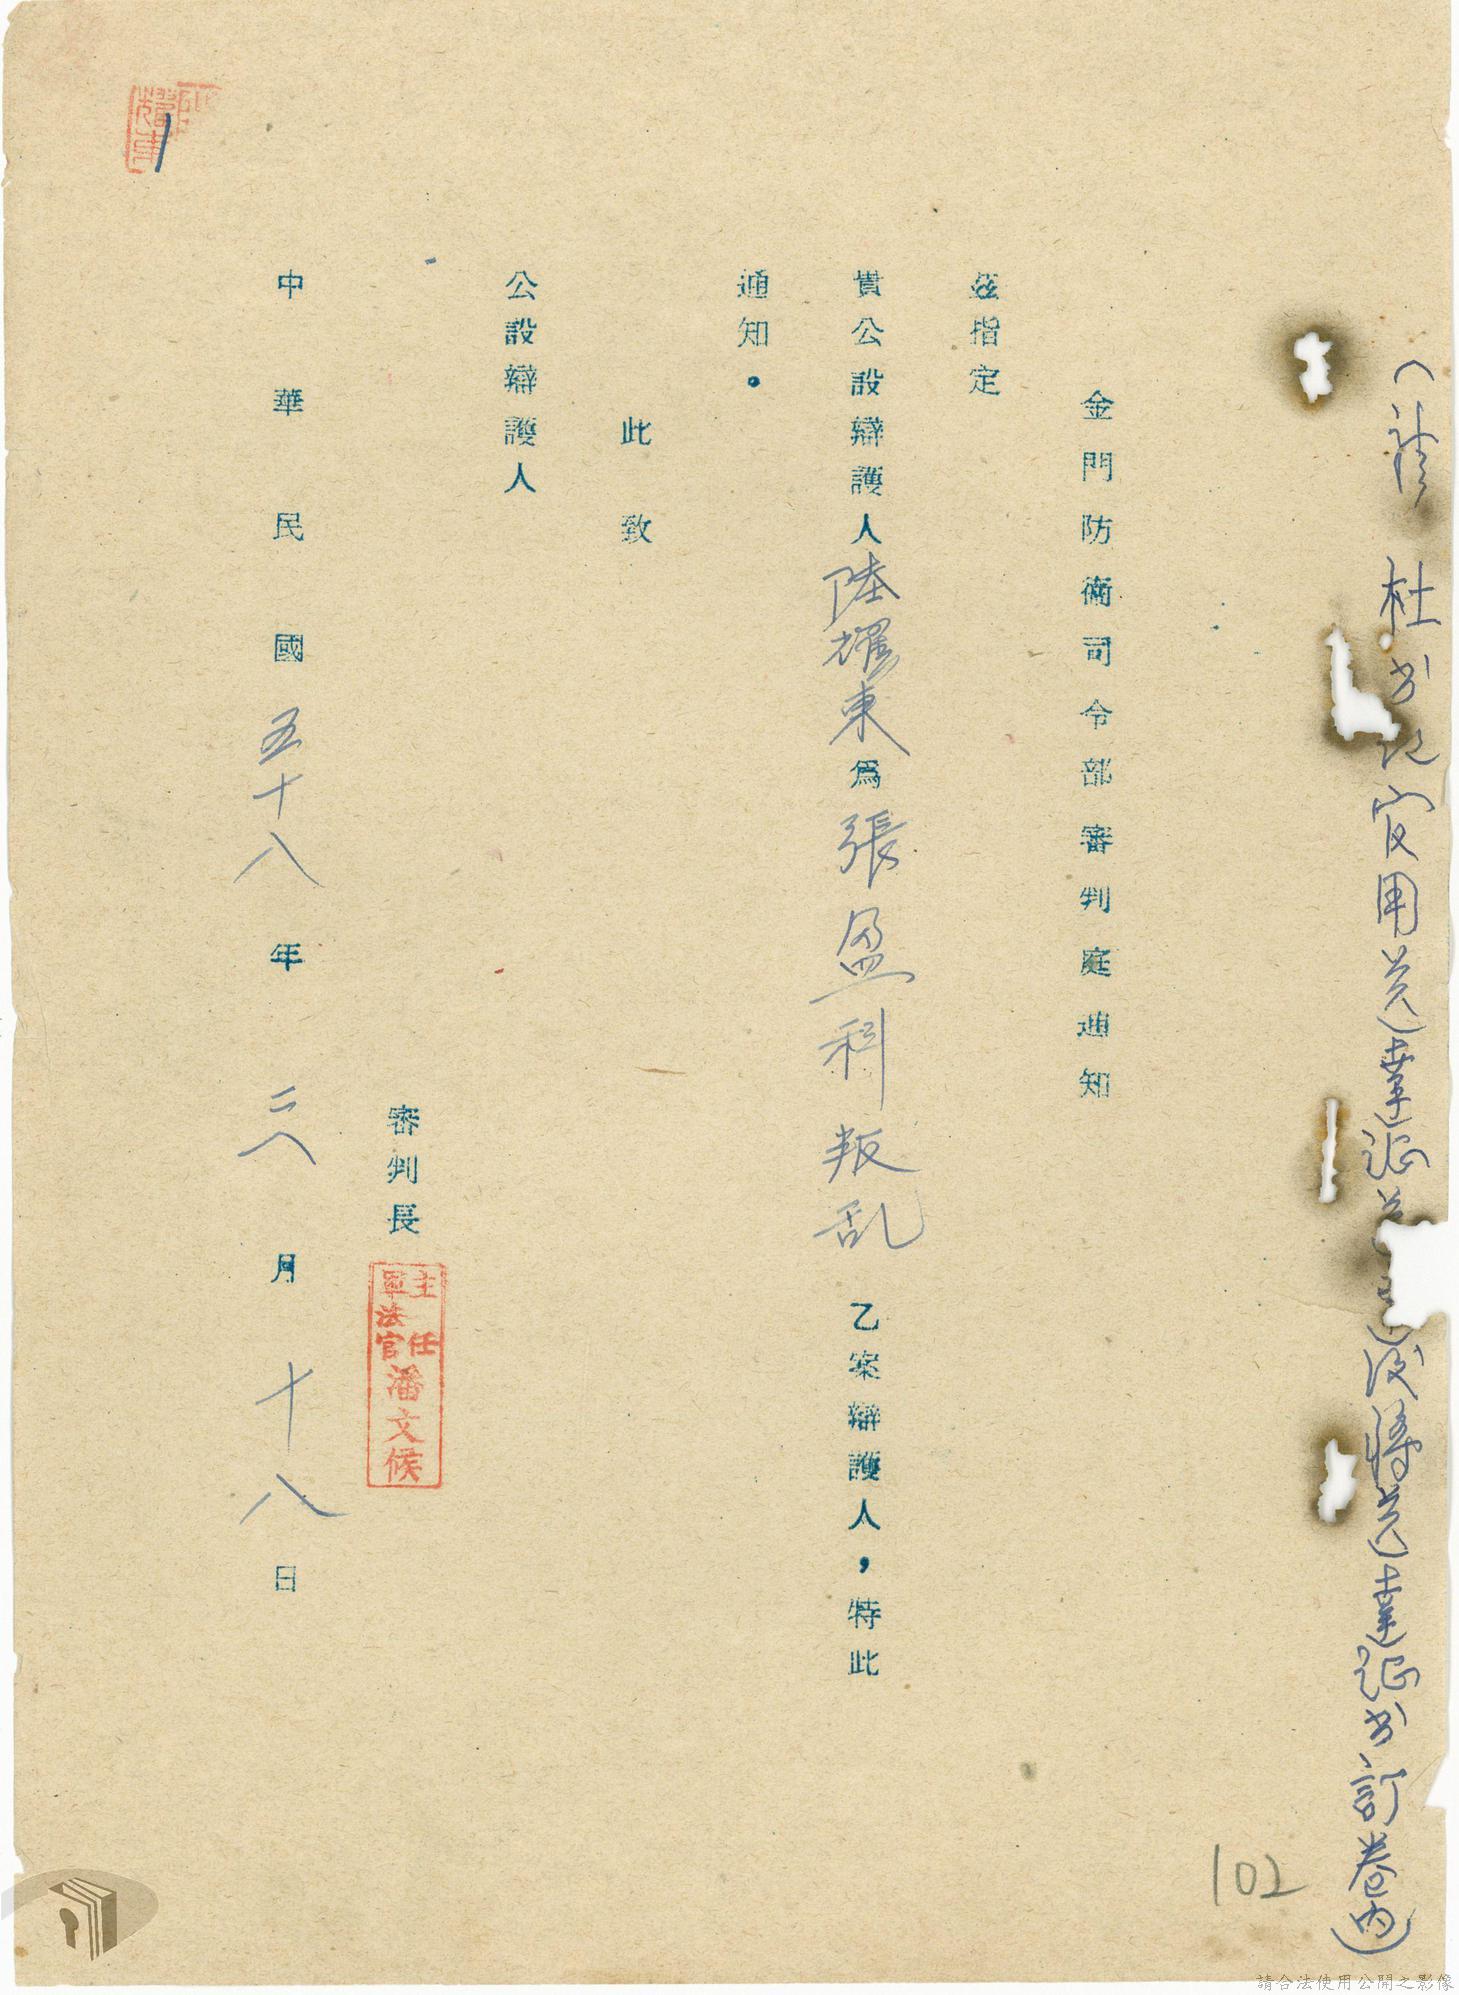 (請 杜书记官用送達証送達後將送達证书訂卷內)
金門防衛司令部審判庭通知
茲指定
貴公設辯護人陸耀東為張盈科叛乱乙案辯護人，特此
通知。
此致
公設辯護人
審判長
主任
軍法官
潘文候
中華民國五十八年二八月十八日
102
請合法使用公開之影像